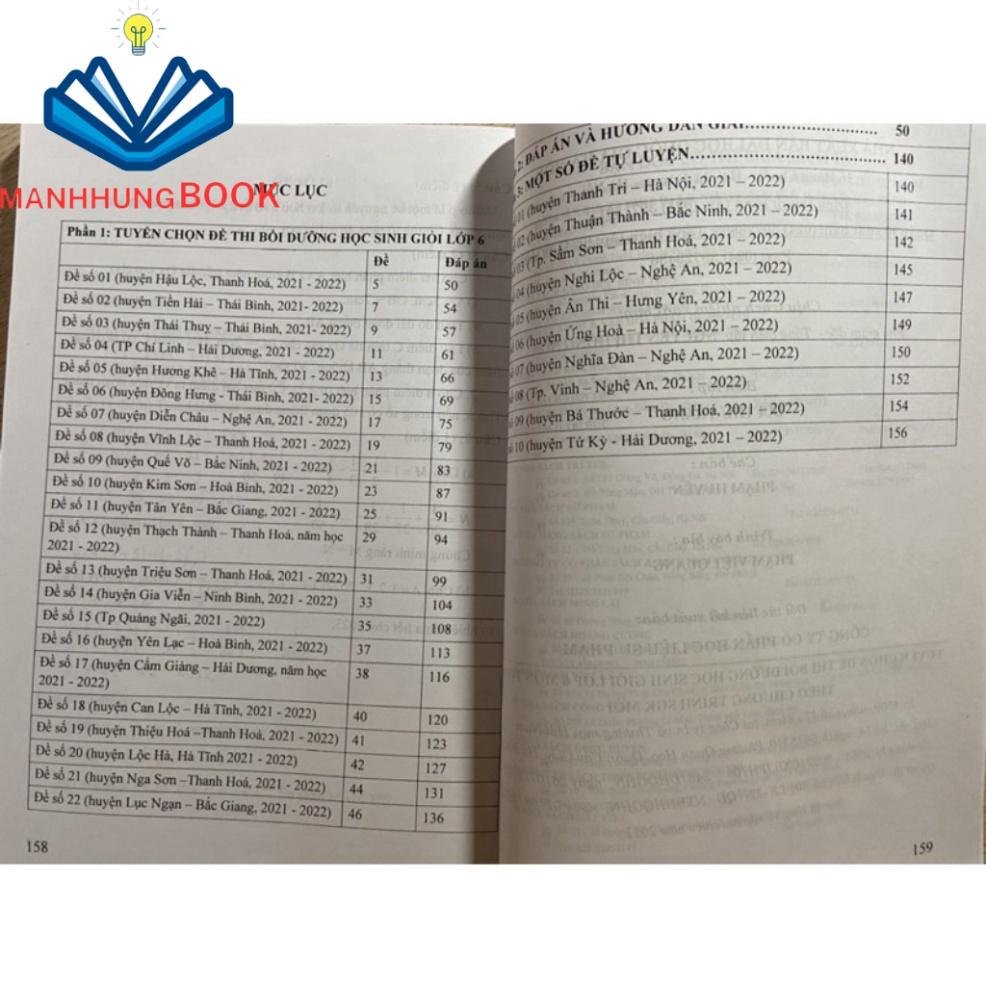 MANHHUNGBOOK
MỤC LỤC
Phần 1: TUYỂN CHỌN ĐỀ THI BỒI DƯỠNG HỌC SINH GIỎI LỚP 6
Đề Đáp án
Đề số 01 (huyện Hậu Lộc, Thanh Hoá, 2021 - 2022) 5 50
Đề số 02 (huyện Tiền Hải – Thái Bình, 2021- 2022) 7 54
Đề số 03 (huyện Thái Thuỵ – Thái Bình, 2021- 2022) 9 57
Đề số 04 (TP Chí Linh – Hải Dương, 2021 - 2022) 11 61
Đề số 05 (huyện Hương Khê – Hà Tĩnh, 2021 - 2022) 13 66
Đề số 06 (huyện Đông Hưng - Thái Bình, 2021- 2022) 15 69
Đề số 07 (huyện Diễn Châu – Nghệ An, 2021 - 2022) 17 75
Đề số 08 (huyện Vĩnh Lộc – Thanh Hoá, 2021 - 2022) 19 79
Đề số 09 (huyện Quế Võ – Bắc Ninh, 2021 - 2022) 21 83
Đề số 10 (huyện Kim Sơn – Hoà Bình, 2021 - 2022) 23 87
Đề số 11 (huyện Tân Yên – Bắc Giang, 2021 - 2022) 25 91
Đề số 12 (huyện Thạch Thành – Thanh Hoá, năm học 29 94
2021 - 2022)
Đề số 13 (huyện Triệu Sơn – Thanh Hoá, 2021 - 2022) 31 99
Đề số 14 (huyện Gia Viễn – Ninh Bình, 2021 - 2022) 33 104
Đề số 15 (Tp Quảng Ngãi, 2021 - 2022) 35 108
Đề số 16 (huyện Yên Lạc – Hoà Bình, 2021 - 2022) 37 113
Đề số 17 (huyện Cẩm Giàng – Hải Dương, năm học 38 116
2021 - 2022)
Đề số 18 (huyện Can Lộc – Hà Tĩnh, 2021 - 2022) 40 120
Đề số 19 (huyện Thiệu Hoá –Thanh Hoá, 2021 - 2022) 41 123
Đề số 20 (huyện Lộc Hà, Hà Tĩnh 2021 - 2022) 42 127
Đề số 21 (huyện Nga Sơn –Thanh Hoá, 2021 - 2022) 44 131
Đề số 22 (huyện Lục Ngạn – Bắc Giang, 2021 - 2022) 46 136
158
2: ĐÁP ÁN VÀ HƯỚNG DẪN GIẢI 50
3: MỘT SỐ ĐỀ TỰ LUYỆN 140
số 01 (huyện Thanh Trì – Hà Nội, 2021 – 2022) 140
số 02 (huyện Thuận Thành – Bắc Ninh, 2021 – 2022) 141
số 03 (Tp. Sầm Sơn – Thanh Hoá, 2021 – 2022) 142
số 04 (huyện Nghi Lộc – Nghệ An, 2021 – 2022) 145
số 05 (huyện Ân Thi – Hưng Yên, 2021 – 2022) 147
số 06 (huyện Ứng Hoà – Hà Nội, 2021 – 2022) 149
số 07 (huyện Nghĩa Đàn – Nghệ An, 2021 – 2022) 150
số 08 (Tp. Vinh – Nghệ An, 2021 – 2022) 152
số 09 (huyện Bá Thước – Thanh Hoá, 2021 – 2022) 154
số 10 (huyện Tứ Kỳ - Hải Dương, 2021 – 2022) 156
159